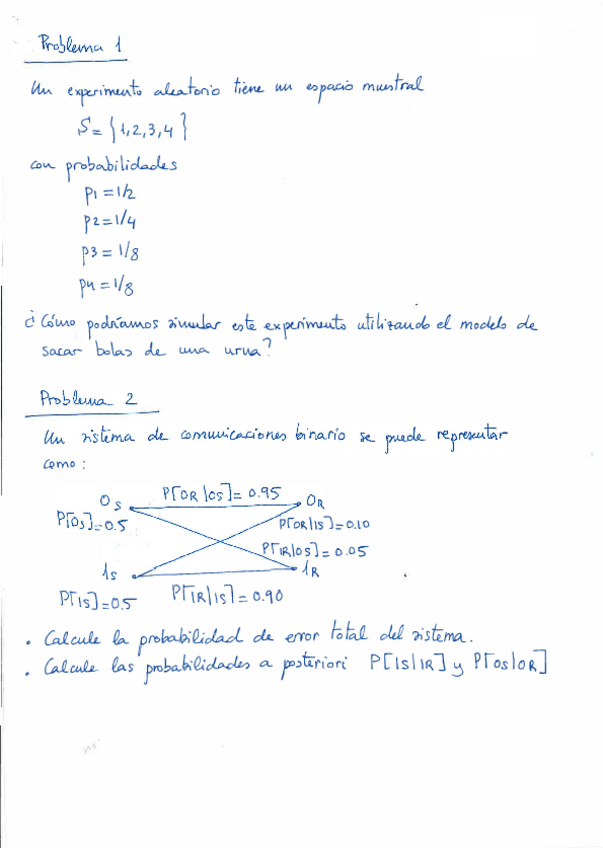 Problema 1
Un experimento aleatorio tiene un espacio muestral
S = {1,2,3,4}
con probabilidades
p1 = 1/2
p2 = 1/4
p3 = 1/8
p4 = 1/8
¿Cómo podríamos simular este experimento utilizando el modelo de
sacar bolas de una urna?
Problema 2
Un sistema de comunicaciones binario se puede representar
como:
0s P[0R|0S] = 0.95 0R
P[0s] = 0.5 P[0R|1S] = 0.10
P[1R|0S] = 0.05
1s 1R
P[1S] = 0.5 P[1R|1S] = 0.90
• Calcule la probabilidad de error total del sistema.
• Calcule las probabilidades a posteriori P[1S|1R] y P[0S|0R]